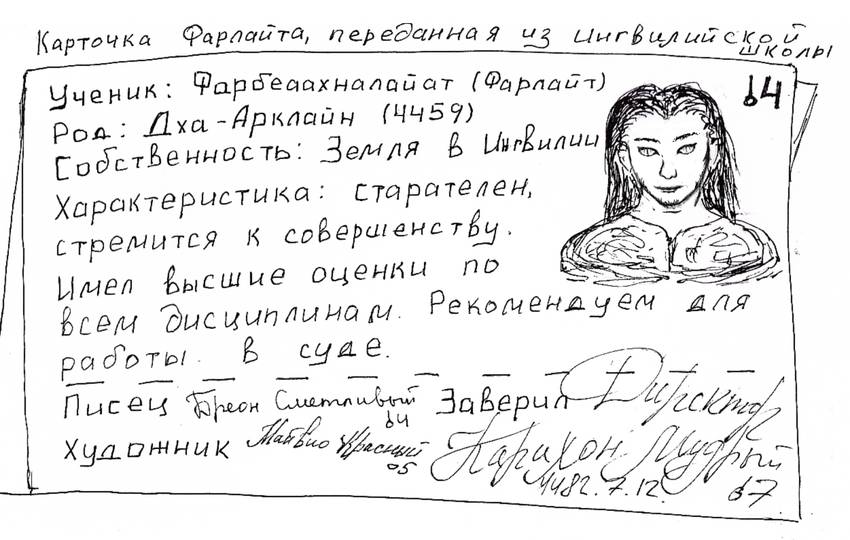 Карточка Фарлайта, переданная из Ингвилийской школы
Ученик: Фарбеаахналайат (Фарлайт)
Род: Дха-Арклайн (4459)
Собственность: Земля в Ингвилии
Характеристика: старателен,
стремится к совершенству.
Имел высшие оценки по
всем дисциплинам. Рекомендуем для
работы в суде.
Писец Бреон Сметливый Заверил Директор
Художник Майвио Красный Карихон Мудрый
4482.7.12.